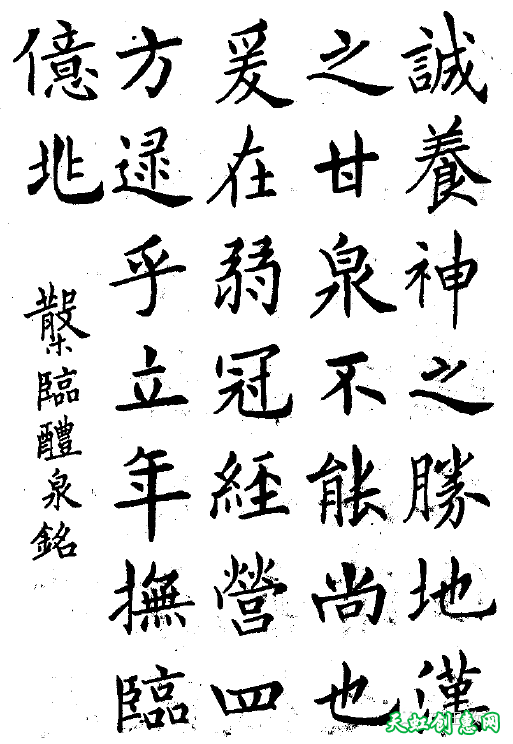 誠養神之勝地漢
之甘泉不能尚也
爰在弱冠經營四
方逮乎立年撫臨
億兆
臨醴泉銘
天虹创意网